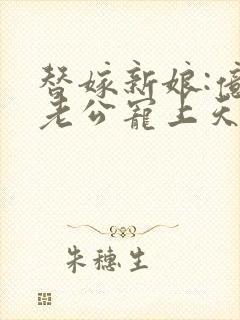 替嫁新娘:億
老公寵上天
朱穗生